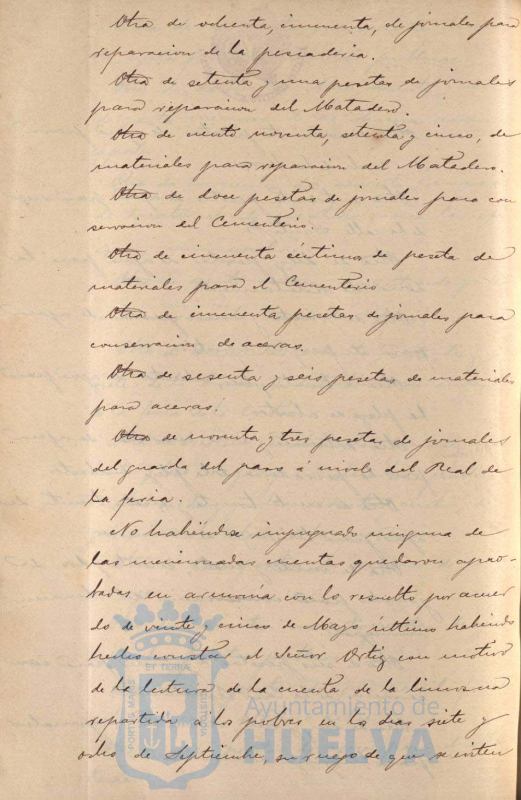 Otra de ochenta, cincuenta, de jornales para
reparacion de la pescaderia.
Otra de setenta y una pesetas de jornales
para reparacion del Matadero.
Otra de ciento noventa, setenta y cinco, de
materiales para reparacion del Matadero.
Otra de doce pesetas de jornales para con
servacion del Cementerio.
Otra de cincuenta céntimos de peseta de
materiales para el Cementerio
Otra de cincuenta pesetas de jornales para
conservacion de aceras.
Otra de sesenta y seis pesetas de materiales
para aceras.
Otra de noventa y tres pesetas de jornales
del guarda del paso á nivel del Real de
la feria.
No habiéndose impugnado ninguna de
las mencionadas cuentas quedaron apro-
badas en armonía con lo resuelto por acuer
do de veinte y cinco de Mayo último habiendo
hecho constar el Señor Ortiz con motivo
de la lectura de la cuenta de la limosna
repartida á los pobres en los dias siete y
ocho de Septiembre, su ruego de que se
PORTUS MARIS
ET TERRAE
CUSTODIA
Ayuntamiento de
HUELVA